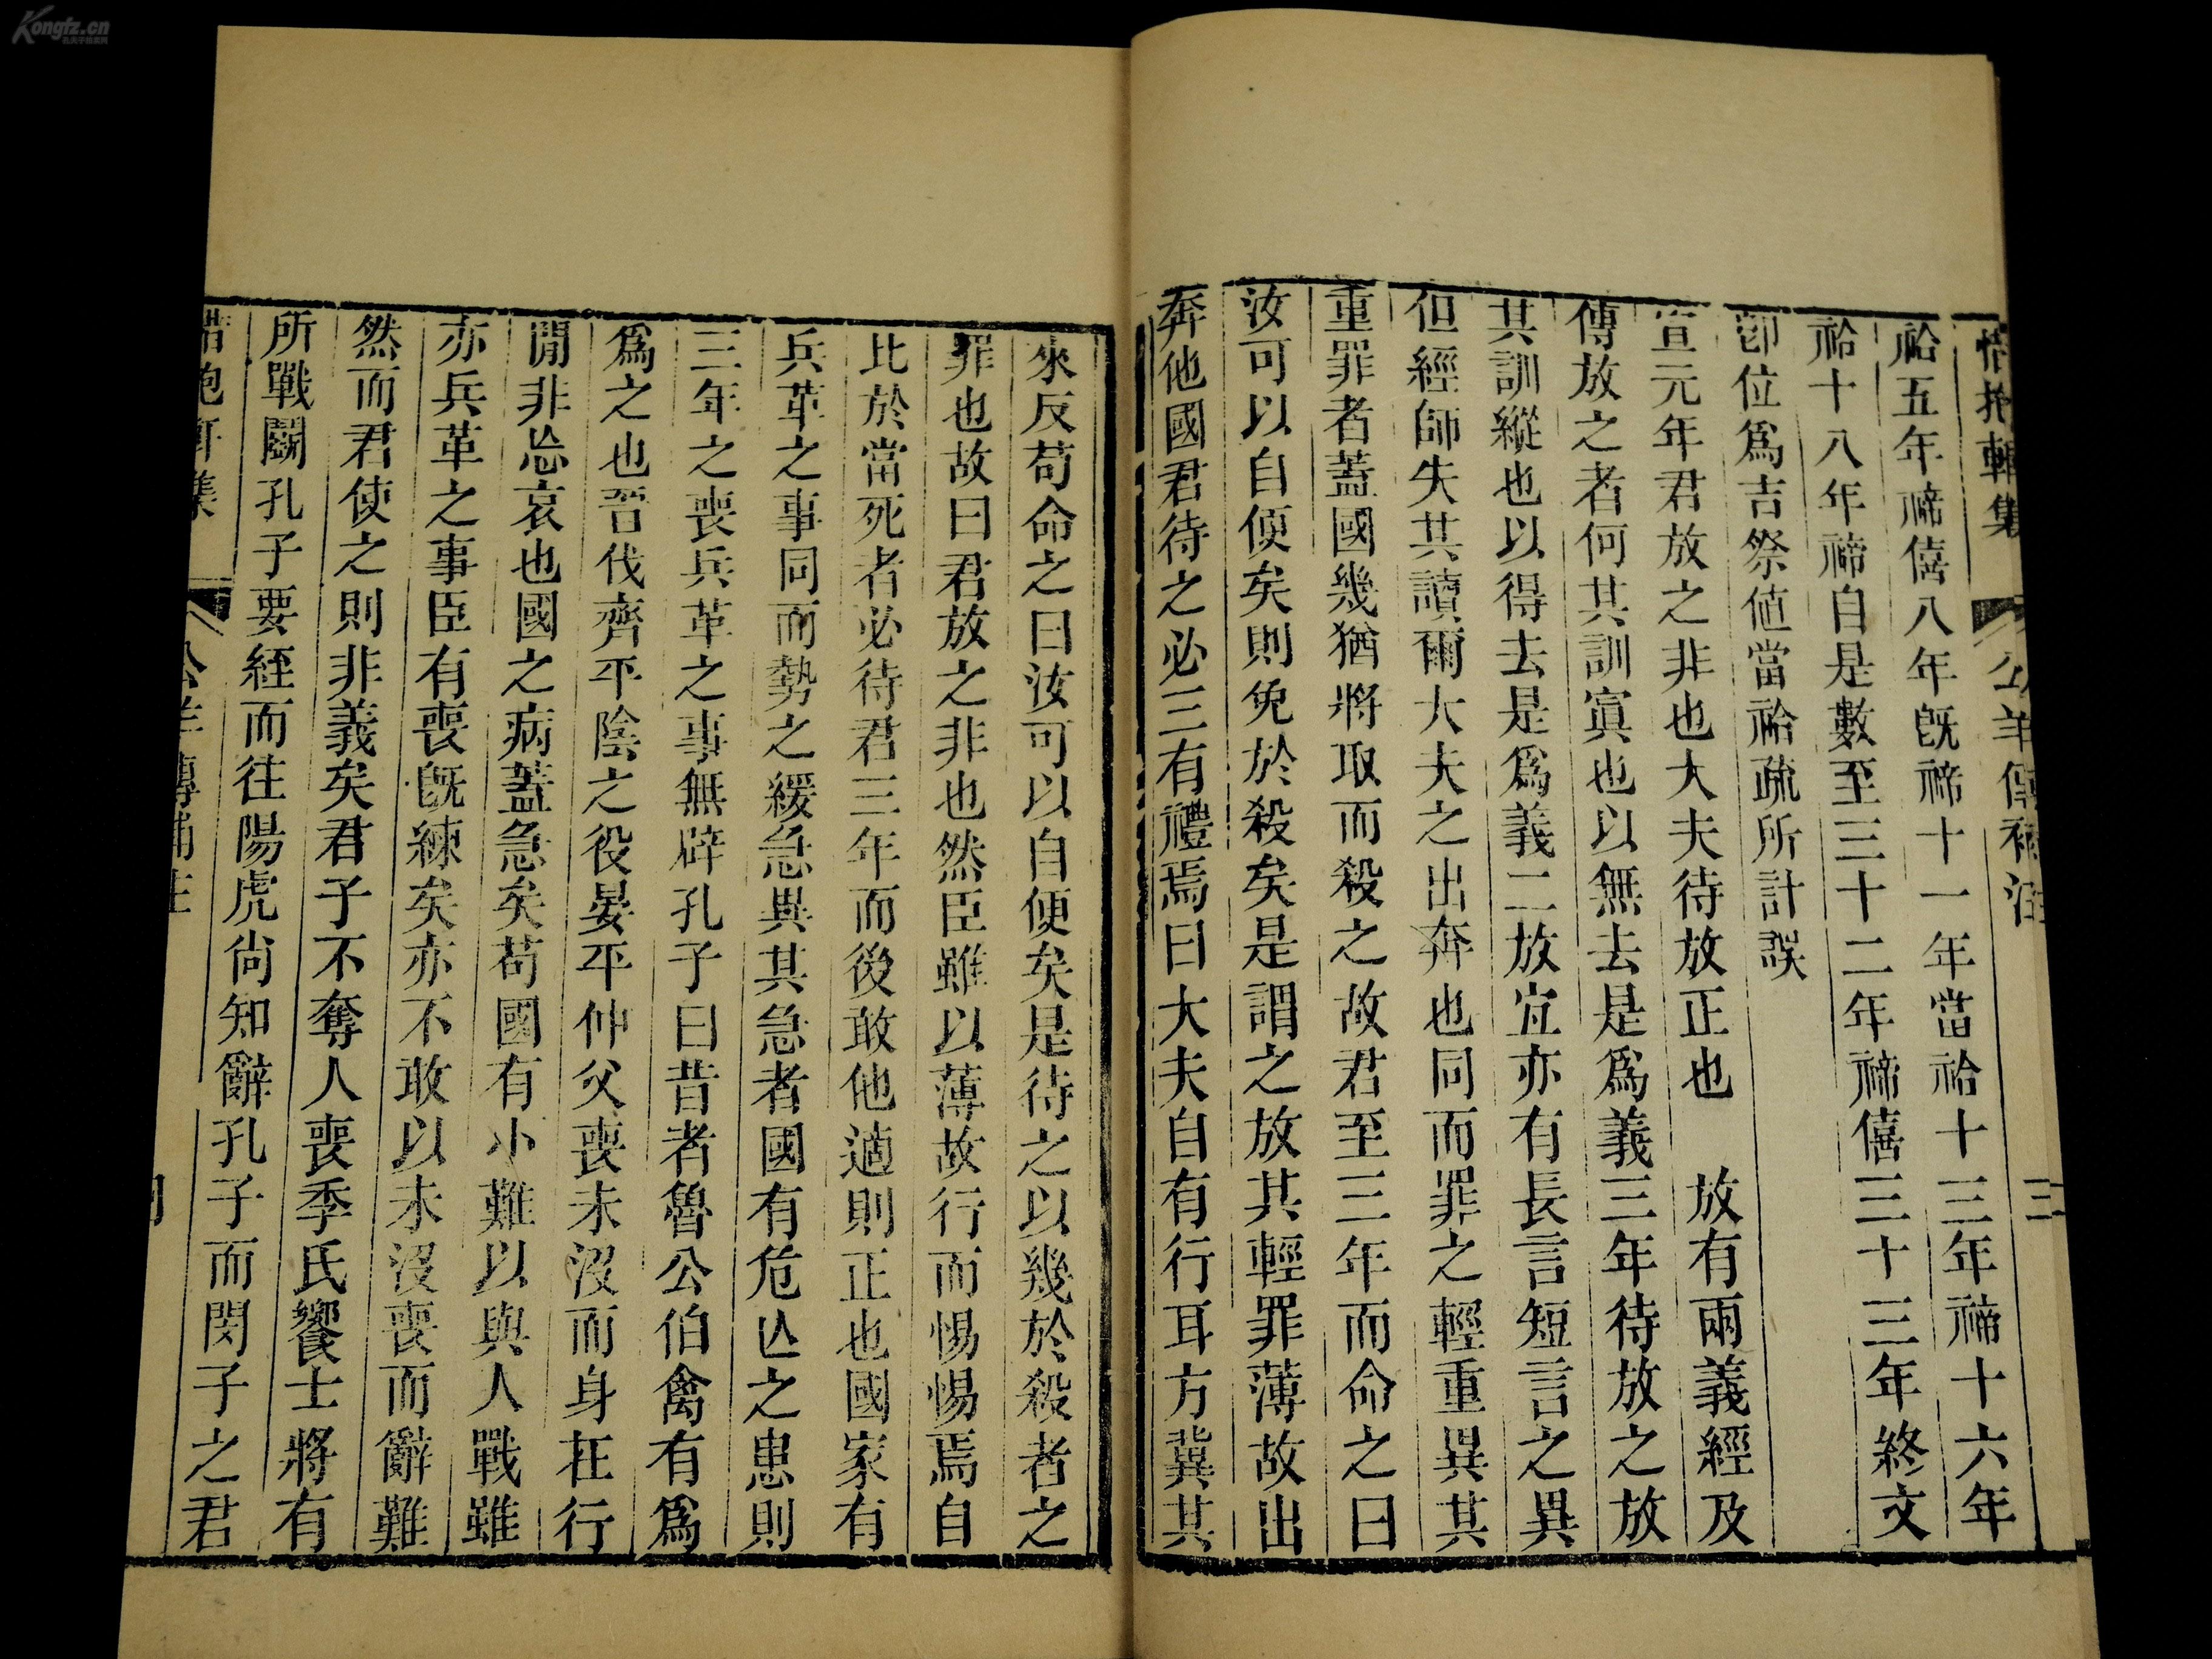 惜抱軒集 公羊傳補注 三
祫五年禘僖八年旣禘十一年當祫十三年禘十六年
祫十八年禘自是數至三十二年禘僖三十三年終文
卽位爲吉祭値當祫疏所計誤
宣元年君放之非也大夫待放正也 放有兩義經及
傳放之者何其訓寘也以無去是爲義三年待放之放
其訓縱也以得去是爲義二放宜亦有長言短言之異
但經師失其讀爾大夫之出奔也同而罪之輕重異其
重罪者蓋國幾猶將取而殺之故君至三年而命之曰
汝可以自便矣則免於殺矣是謂之放其輕罪薄故出
奔他國君待之必三有禮焉曰大夫自有行耳方冀其
來反苟命之曰汝可以自便矣是待之以幾於殺者之
罪也故曰君放之非也然臣雖以薄故行而惕惕焉自
比於當死者必待君三年而後敢他適則正也國家有
兵革之事同而勢之緩急異其急者國有危亾之患則
三年之喪兵革之事無辟孔子曰昔者魯公伯禽有爲
爲之也晉伐齊平陰之役晏平仲父喪未沒而身在行
閒非忘哀也國之病蓋急矣苟國有小難以與人戰雖
亦兵革之事臣有喪旣練矣亦不敢以未沒喪而辭難
然而君使之則非義矣君子不奪人喪季氏饗士將有
所戰鬭孔子要絰而往陽虎尙知辭孔子而閔子之君
惜抱軒集 公羊傳補注